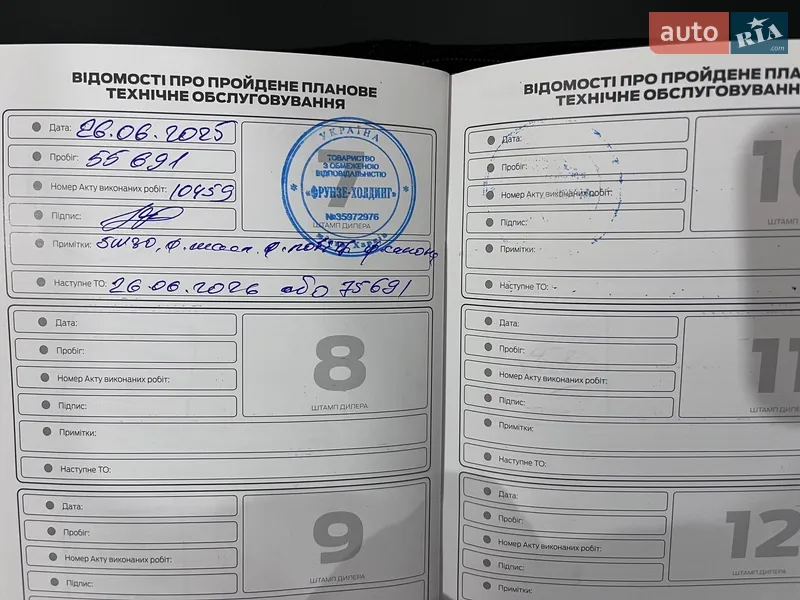 auto RIA .com
ВІДОМОСТІ ПРО ПРОЙДЕНЕ ПЛАНОВЕ
ТЕХНІЧНЕ ОБСЛУГОВУВАННЯ
Дата: 26.06.2025
Пробіг: 55 691
Номер Акту виконаних робіт: 10459
Підпис:
Примітки: 5W30, ф.масл. ф. пов. ф. салона
Наступне ТО: 26.06.2026 або 75691
7
ШТАМП ДИЛЕРА
УКРАЇНА
ТОВАРИСТВО
З ОБМЕЖЕНОЮ
ВІДПОВІДАЛЬНІСТЮ
«ФРУНЗЕ-ХОЛДИНГ»
№35972976
Харків
Дата:
Пробіг:
Номер Акту виконаних робіт:
Підпис:
Примітки:
Наступне ТО:
8
ШТАМП ДИЛЕРА
Дата:
Пробіг:
Номер Акту виконаних робіт:
Підпис:
9
ШТАМП ДИЛЕРА
ВІДОМОСТІ ПРО ПРОЙДЕНЕ ПЛА
ТЕХНІЧНЕ ОБСЛУГОВУВАНН
Дата:
Пробіг:
Номер Акту виконаних робіт:
Підпис:
Примітки:
Наступне ТО:
10
ШТАМП
Дата:
Пробіг:
Номер Акту виконаних робіт:
Підпис:
Примітки:
Наступне ТО:
11
ШТАМП ДИЛЕРА
Дата:
Пробіг:
Номер Акту виконаних робіт:
Підпис:
Примітки:
12
ШТАМП ДИЛЕРА